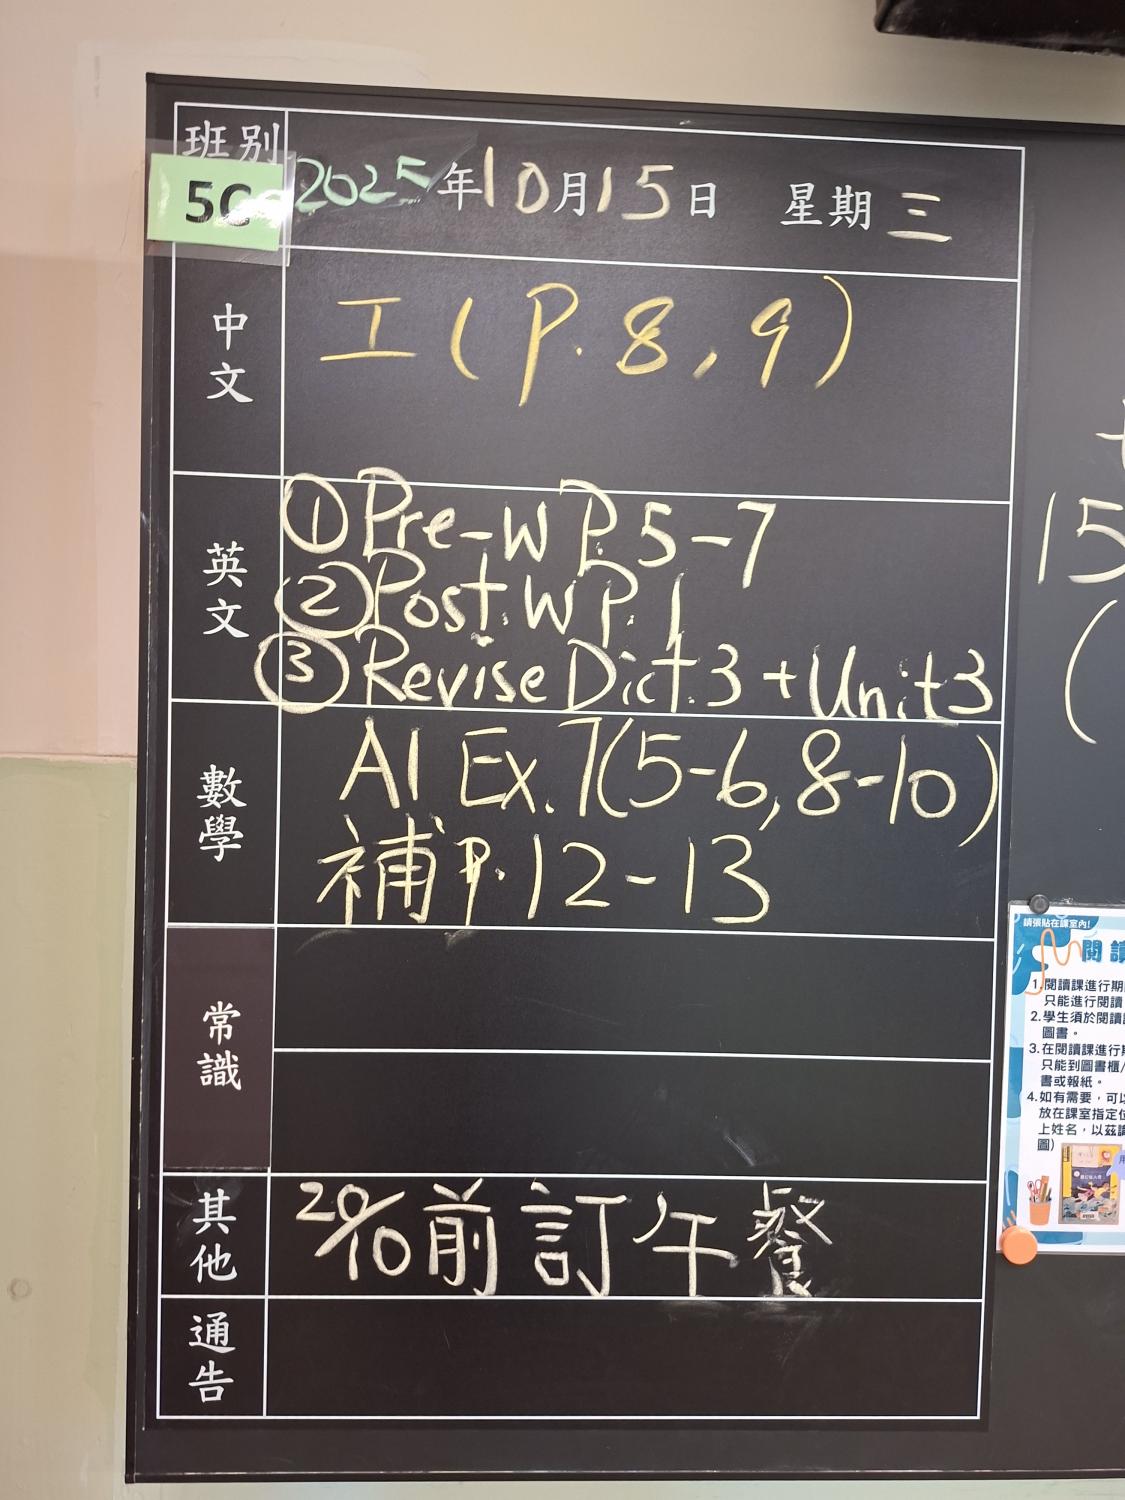 班別
5C
2025年10月15日 星期三
中文
工(P.8,9)
英文
①Pre-W P.5-7
②Post.W P.1
③Revise Dict.3+Unit3
數學
A1 Ex.7(5-6,8-10)
補P.12-13
常識
其他
20/10前訂午餐
通告
15
(
請張貼在課室內!
閱讀
1.閱讀課進行期
只能進行閱讀
2.學生須於閱讀
圖書。
3.在閱讀課進行
只能到圖書櫃/
書或報紙。
4.如有需要,可以
放在課室指定位
上姓名,以茲
圖)